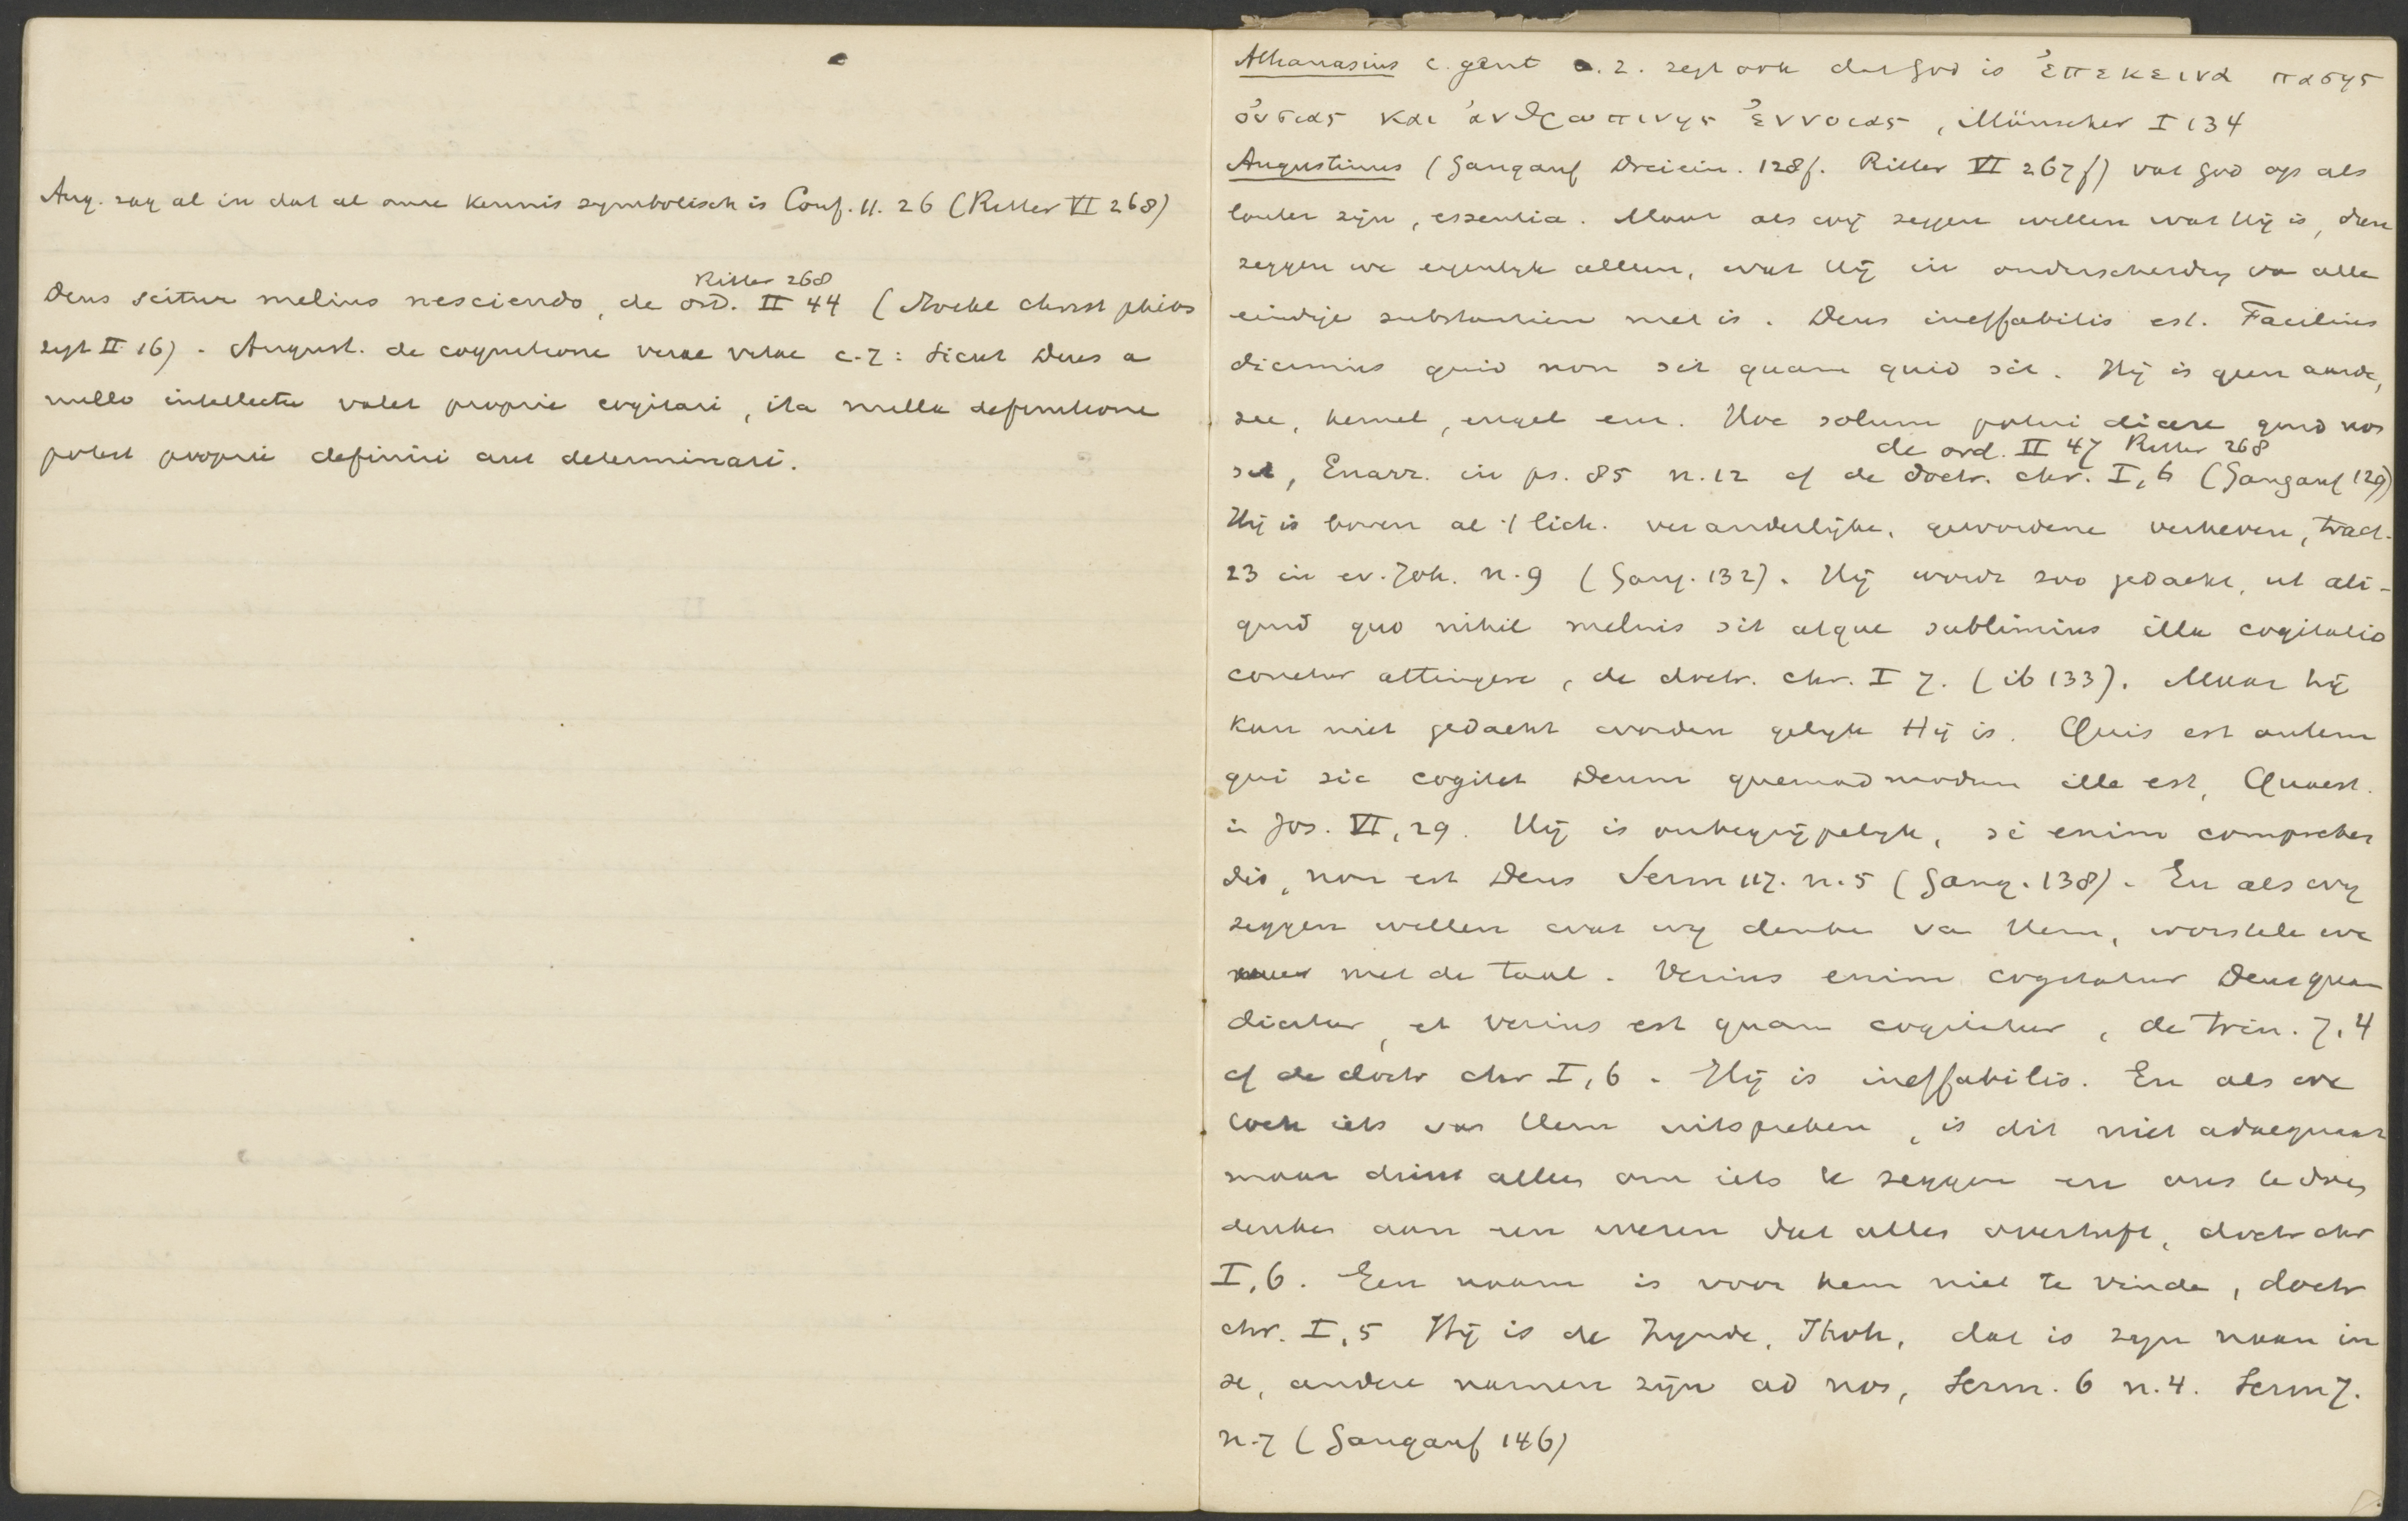 Aug. zag al in dat al onze kennis symbolisch is Conf. 11. 26 (Ritter VI 268)
Ritter 268
Deus scitur melius nesciendo, de ord. II 44 (Moehl christ phios
zegt II 16). August. de cognitione verae vitae c. 7: Sicut Deus a
nullo intellectu valet proprie cogitari, ita nulla definitione
potest proprie definiri aut determinari.
Athanasius c. gent 2. zegt ook dat God is ἐπεκεινα πασης
ὀυσιας και ἀνθρωπινης ἐννοιας, Münscher I 134
Augustinus (Gangauf Dreiein. 128f. Ritter VI 267f) vat God op als
louter zijn, essentia. Maar als wij zeggen willen wat Hij is, dan
zeggen we eigenlijk alleen, wat Hij in onderscheiding va alle
eindige substantien niet is. Deus ineffabilis est. Facilius
dicimus quid non sit quam quid sit. Hij is geen aarde,
zee, hemel, engel enz. Hoc solum potui dicere quid non
de ord. II 47 Ritter 268
sit, Enarr. in ps. 85 n. 12 cf de doctr. chr. I, 6 (Gangauf 129)
Hij is boven al 't lich. veranderlijke, gewordene verheven, tract.
23 in ev. Joh. n. 9 (Gang. 132). Hij wordt zoo gedacht, ut ali-
quid quo nihil melius sit atque sublimius illa cogitatio
conetur attingere, de doctr. chr. I 7. (ib 133). Maar hij
kan niet gedacht worden gelijk Hij is. Quis est autem
qui sic cogitet Deum quemadmodum ille est, Quaest.
in Jos. VI, 29. Hij is onbegrijpelijk, si enim comprehen
dis, non est Deus Serm 117. n. 5 (Gang. 138). En als wij
zeggen willen wat wij denken va Hem, worstele we
met de taal. Verius enim cogitatur Deus quam
dicitur, et verius est quam cogitatur, de trin. 7, 4
cf de doctr chr I, 6. Hij is ineffabilis. En als we
toch iets van Hem uitspreken, is dit niet adaequaat
maar dient alleen om iets te zeggen en ons te doen
denken aan een wezen dat alles overtreft, doctr chr
I, 6. Een naam is voor hem niet te vinde, doctr
chr. I, 5 Hij is de Zijnde, Jhvh, dat is zijn naam in
se, andere namen zijn ad nos, Serm. 6 n. 4. Serm 7.
n. 7 (Gangauf 146)